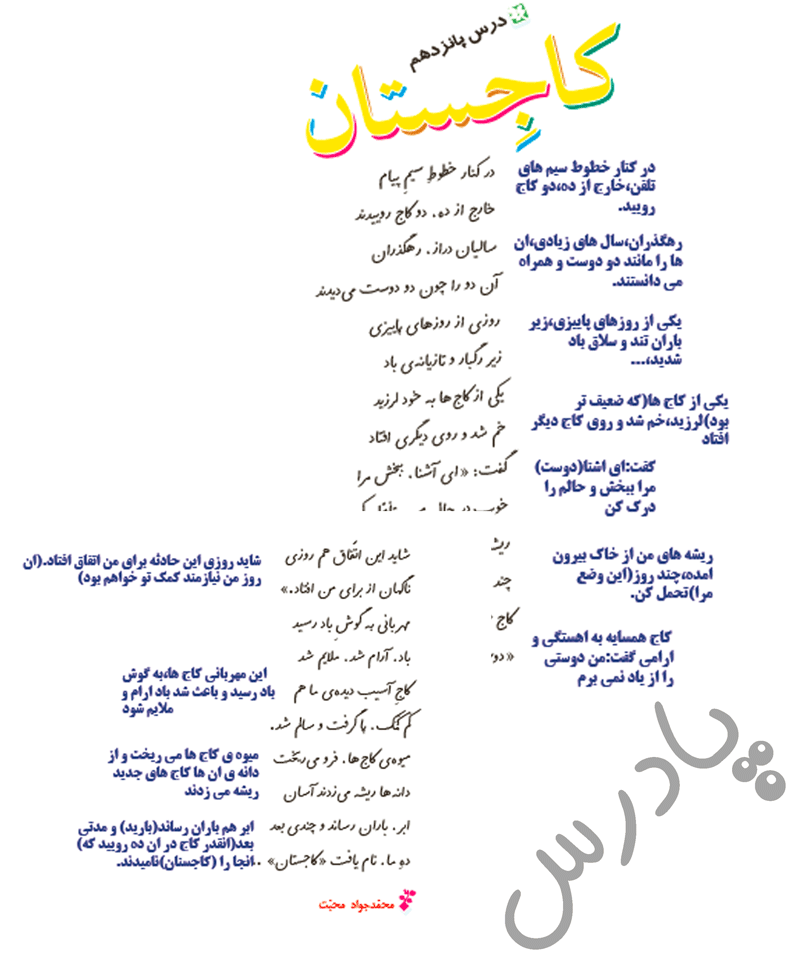 درس پانزدهم
کاجِستان
در کنار خطوطِ سیمِ پیام
خارج از ده، دو کاج روییدند
در کنار خطوط سیم های
تلفن،خارج از ده،دو کاج
رویید.
سالیان دراز، رهگذران
آن دو را چون دو دوست می‌دیدند
رهگذران،سال های زیادی،ان
ها را مانند دو دوست و همراه
می دانستند.
روزی از روزهای پاییزی
زیر رگبار و تازیانه‌ی باد
یکی از روزهای پاییزی،زیر
باران تند و سلاق باد
شدید،...
یکی از کاج ها به خود لرزید
خم شد و روی دیگری افتاد
یکی از کاج ها(که ضعیف تر
بود)لرزید،خم شد و روی کاج دیگر
افتاد
گفت: «ای آشنا، ببخش مرا
خوب در حال
گفت:ای اشنا(دوست)
مرا ببخش و حالم را
درک کن
ریشه
چند
ریشه های من از خاک بیرون
امده،چند روز(این وضع
مرا)تحمل کن.
کاج
«دو
کاج همسایه به اهستگی و
ارامی گفت:من دوستی
را از یاد نمی برم
شاید این اتّفاق هم روزی
ناگهان از برای من افتاد.»
شاید روزی این حادثه برای من اتفاق افتاد.(ان
روز من نیازمند کمک تو خواهم بود)
مهربانی به گوشِ باد رسید
باد، آرام شد، ملایم شد
کاجِ آسیب دیده‌ی ما هم
کم کَمَک، پا گرفت و سالم شد.
این مهربانی کاج ها،به گوش
باد رسید و باعث شد باد ارام و
ملایم شود
میوه‌ی کاج‌ها، فرو می‌ریخت
دانه‌ها ریشه می‌زدند آسان
میوه ی کاج ها می ریخت و از
دانه ی ان ها کاج های جدید
ریشه می زدند
ابر، باران رساند و چندی بعد
دهِ ما، نام یافت «کاجستان»
ابر هم باران رساند(بارید) و مدتی
بعد(انقدر کاج در ان ده رویید که)
انجا را (کاجسنان)نامیدند...
محمّدجواد محبّت
پادرس